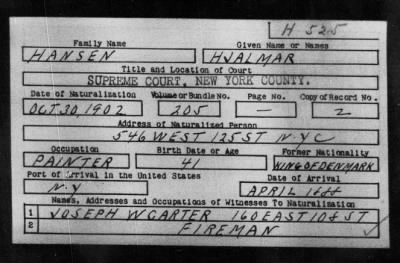 H 525
Family Name Given Name or Names
HANSEN HJALMAR
Title and Location of Court
SUPREME COURT, NEW YORK COUNTY.
Date of Naturalization Volume or Bundle No. Page No. Copy of Record No.
OCT. 30, 1902 205 — 2
Address of Naturalized Person
546 WEST 125 ST N.Y.C
Occupation Birth Date or Age Former Nationality
PAINTER 41 KING OF DENMARK
Port of Arrival in the United States Date of Arrival
N.Y APRIL
Names, Addresses and Occupations of Witnesses To Naturalization
1 JOSEPH W CARTER 160 EAST 108 ST
2 FIREMAN